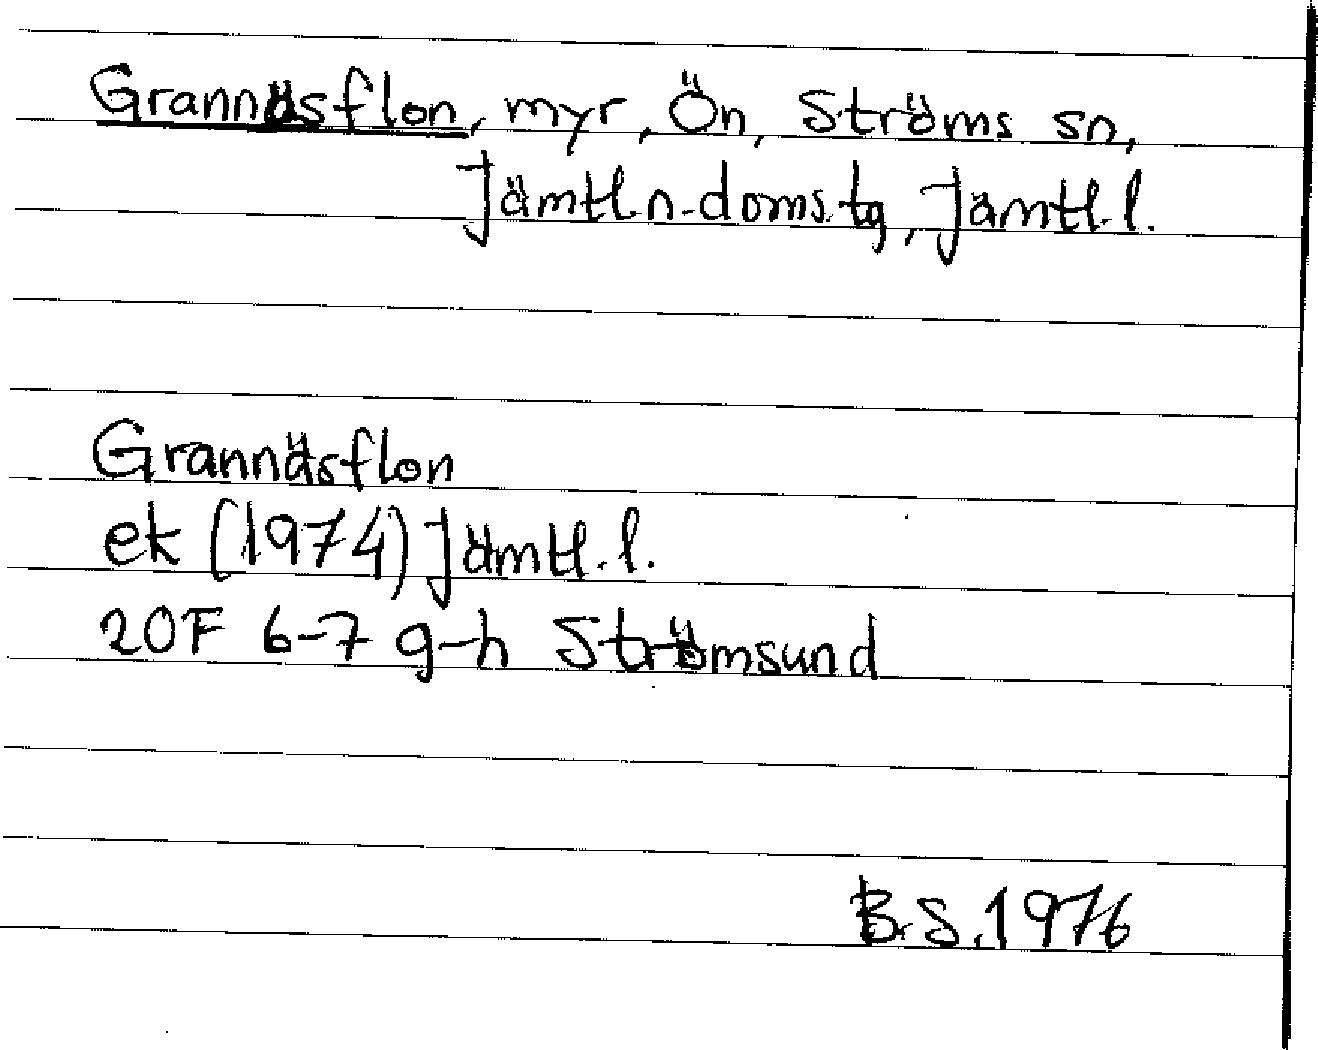 Grannäsflon, myr, Ön, Ströms sn,
Jämtl.n.doms.tg, Jämtl.l.
Grannäsflon
ek (1974) Jämtl.l.
20F 6-7 g-h Strömsund
B.S.1976